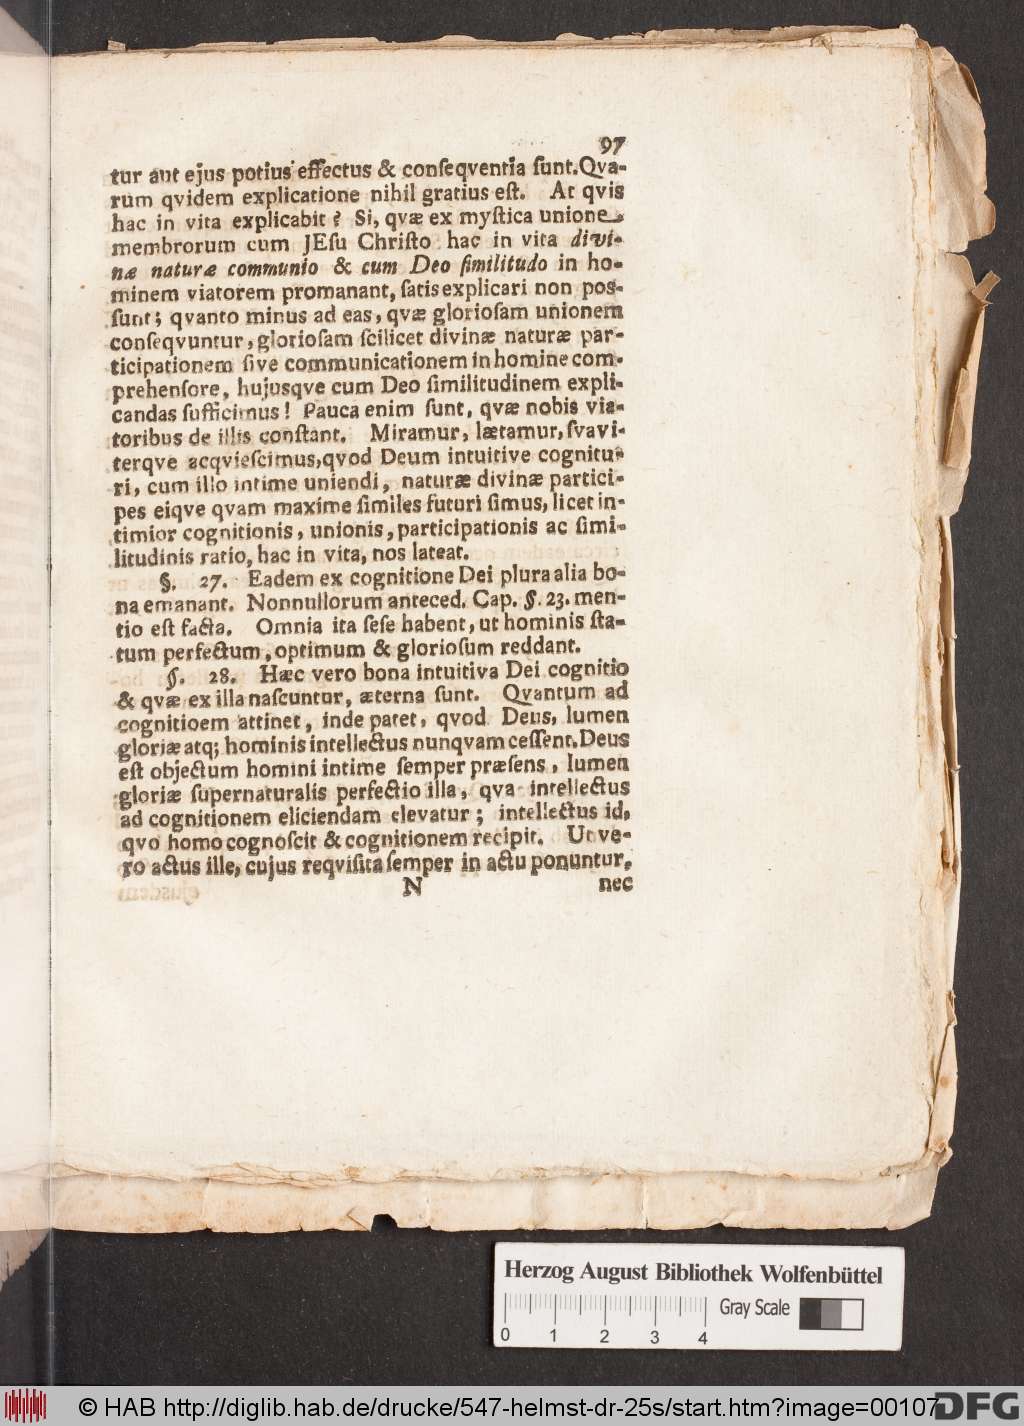 97
tur aut ejus potius effectus & conſeqventia ſunt. Qva-
rum qvidem explicatione nihil gratius eſt. At qvis
hac in vita explicabit? Si, qvæ ex myſtica unione
membrorum cum JEſu Chriſto hac in vita divi-
næ naturæ communio & cum Deo ſimilitudo in ho-
minem viatorem promanant, ſatis explicari non poſ-
ſunt; qvanto minus ad eas, qvæ glorioſam unionem
conſeqvuntur, glorioſam ſcilicet divinæ naturæ par-
ticipationem ſive communicationem in homine com-
prehenſore, hujusqve cum Deo ſimilitudinem expli-
candas ſufficimus! Pauca enim ſunt, qvæ nobis via-
toribus de illis conſtant. Miramur, lætamur, ſvavi-
terqve acqvieſcimus, qvod Deum intuitive cognitu-
ri, cum illo intime uniendi, naturæ divinæ partici-
pes eiqve qvam maxime ſimiles futuri ſimus, licet in-
timior cognitionis, unionis, participationis ac ſimi-
litudinis ratio, hac in vita, nos lateat.
§. 27. Eadem ex cognitione Dei plura alia bo-
na emanant. Nonnullorum anteced. Cap. §. 23. men-
tio eſt facta. Omnia ita ſeſe habent, ut hominis ſta-
tum perfectum, optimum & glorioſum reddant.
§. 28. Hæc vero bona intuitiva Dei cognitio
& qvæ ex illa naſcuntur, æterna ſunt. Qvantum ad
cognitioem attinet, inde patet, qvod Deus, lumen
gloriæ atq; hominis intellectus nunqvam ceſſent. Deus
eſt objectum homini intime ſemper præſens, lumen
gloriæ ſupernaturalis perfectio illa, qva intellectus
ad cognitionem eliciendam elevatur; intellectus id,
qvo homo cognoſcit & cognitionem recipit. Ut ve-
ro actus ille, cujus reqviſita ſemper in actu ponuntur,
N nec
Herzog August Bibliothek Wolfenbüttel
0 1 2 3 4 Gray Scale
© HAB http://diglib.hab.de/drucke/547-helmst-dr-25s/start.htm?image=00107
DFG